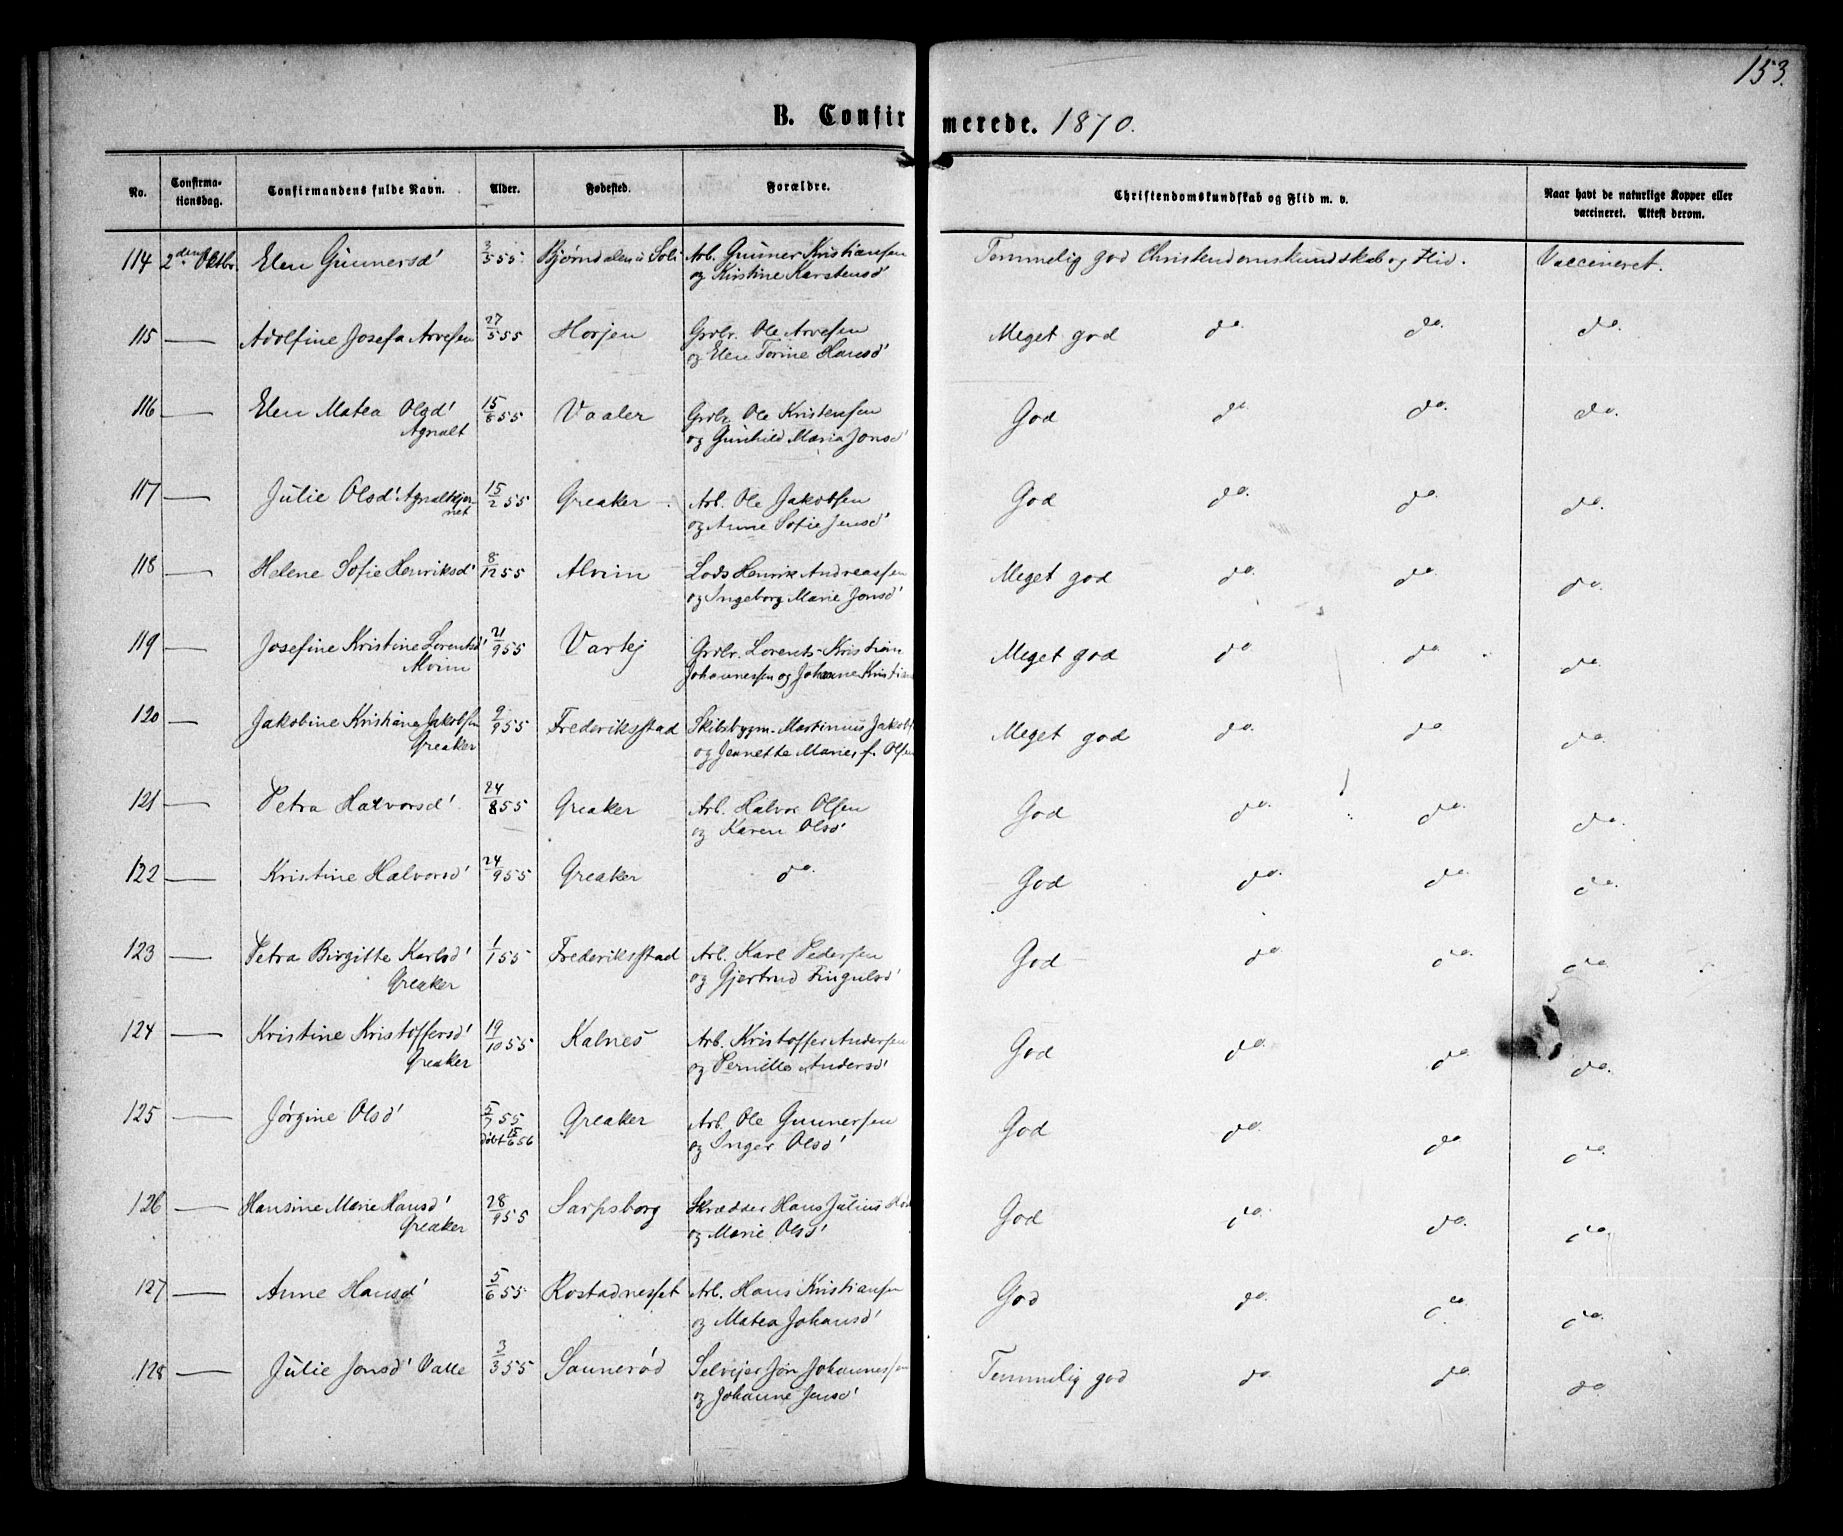 153.
B. Confirmerede. 1870.
No. Confirma-tionsdag. Confirmandens fulde Navn. Alder. Fødested. Forældre. Christendomskundskab og Flid m. v. Naar havt de naturlige Kopper eller vaccineret. Attest derom.
114 2den Oktbr. Elen Gunnersd' 3/5 55 Bjørndalen i Soli Arb. Gunner Kristiansen Temmelig god Christendomskundskab og Flid. Vaccineret.
og Kristine Karstensd'
115 — Adolfine Josefa Arvesen 27/5 55 Horjen Grdbr. Ole Arvesen Meget god do. do. do.
og Elen Torine Hansd'
116 — Elen Matea Olsd' 15/8 55 Vaaler Grdbr. Ole Kristensen God do. do. do.
Agnalt og Gunhild Maria Jonsd'
117 — Julie Olsd' Agnaltkjer- 15/2 55 Greaker Arb. Ole Jakobsen God do. do. do.
net og Anne Sofie Jensd'
118 — Helene Sofie Henriksd' 8/12 55 Alvim Lods Henrik Andreassen Meget god do. do. do.
og Ingeborg Marie Jonsd'
119 — Josefine Kristine Lorentsd' 21/9 55 Vartej Grdbr. Lorents Kristian Meget god do do. do.
Alvim Johannessen og Johanne Kristians
120 — Jakobine Kristiane Jakobsen 9/9 55 Frederiksstad Skibsbygm. Martinius Jakobs Meget god do. do do.
Greaker og Jeanette Marie f. Olsen
121 — Petra Halvorsd' 24/8 55 Greaker Arb. Halvor Olsen God do. do. do.
og Karen Olsd'
122 — Kristine Halvorsd' 24/9 55 Greaker do. God do. do. do.
123 — Petra Birgitte Karlsd' 1/1 55 Frederiksstad Arb. Karl Pedersen God do do. do.
Greaker og Gjertrud Tingulsd'
124 — Kristine Kristoffersd' 19/10 55 Kalnes Arb. Kristoffer Andersen God do. do. do.
Greaker og Pernille Andersd'
125 — Jørgine Olsd' 5/7 55 Greaker Arb. Ole Gunnersen God do. do. do.
døbt 15/6 56 og Inger Olsd'
126 — Hansine Marie Hansd' 28/9 55 Sarpsborg Skrædder Hans Julius God do. do. do.
Greaker og Marie Olsd'
127 — Anne Hansd' 5/6 55 Rostadnesset Arb. Hans Kristiansen God do. do. do.
og Matea Johansd'
128 — Julie Jonsd' Valle 3/3 55 Sannerød Selvejer Jon Johannessen Temmelig god do. do. do
og Johanne Jensd'